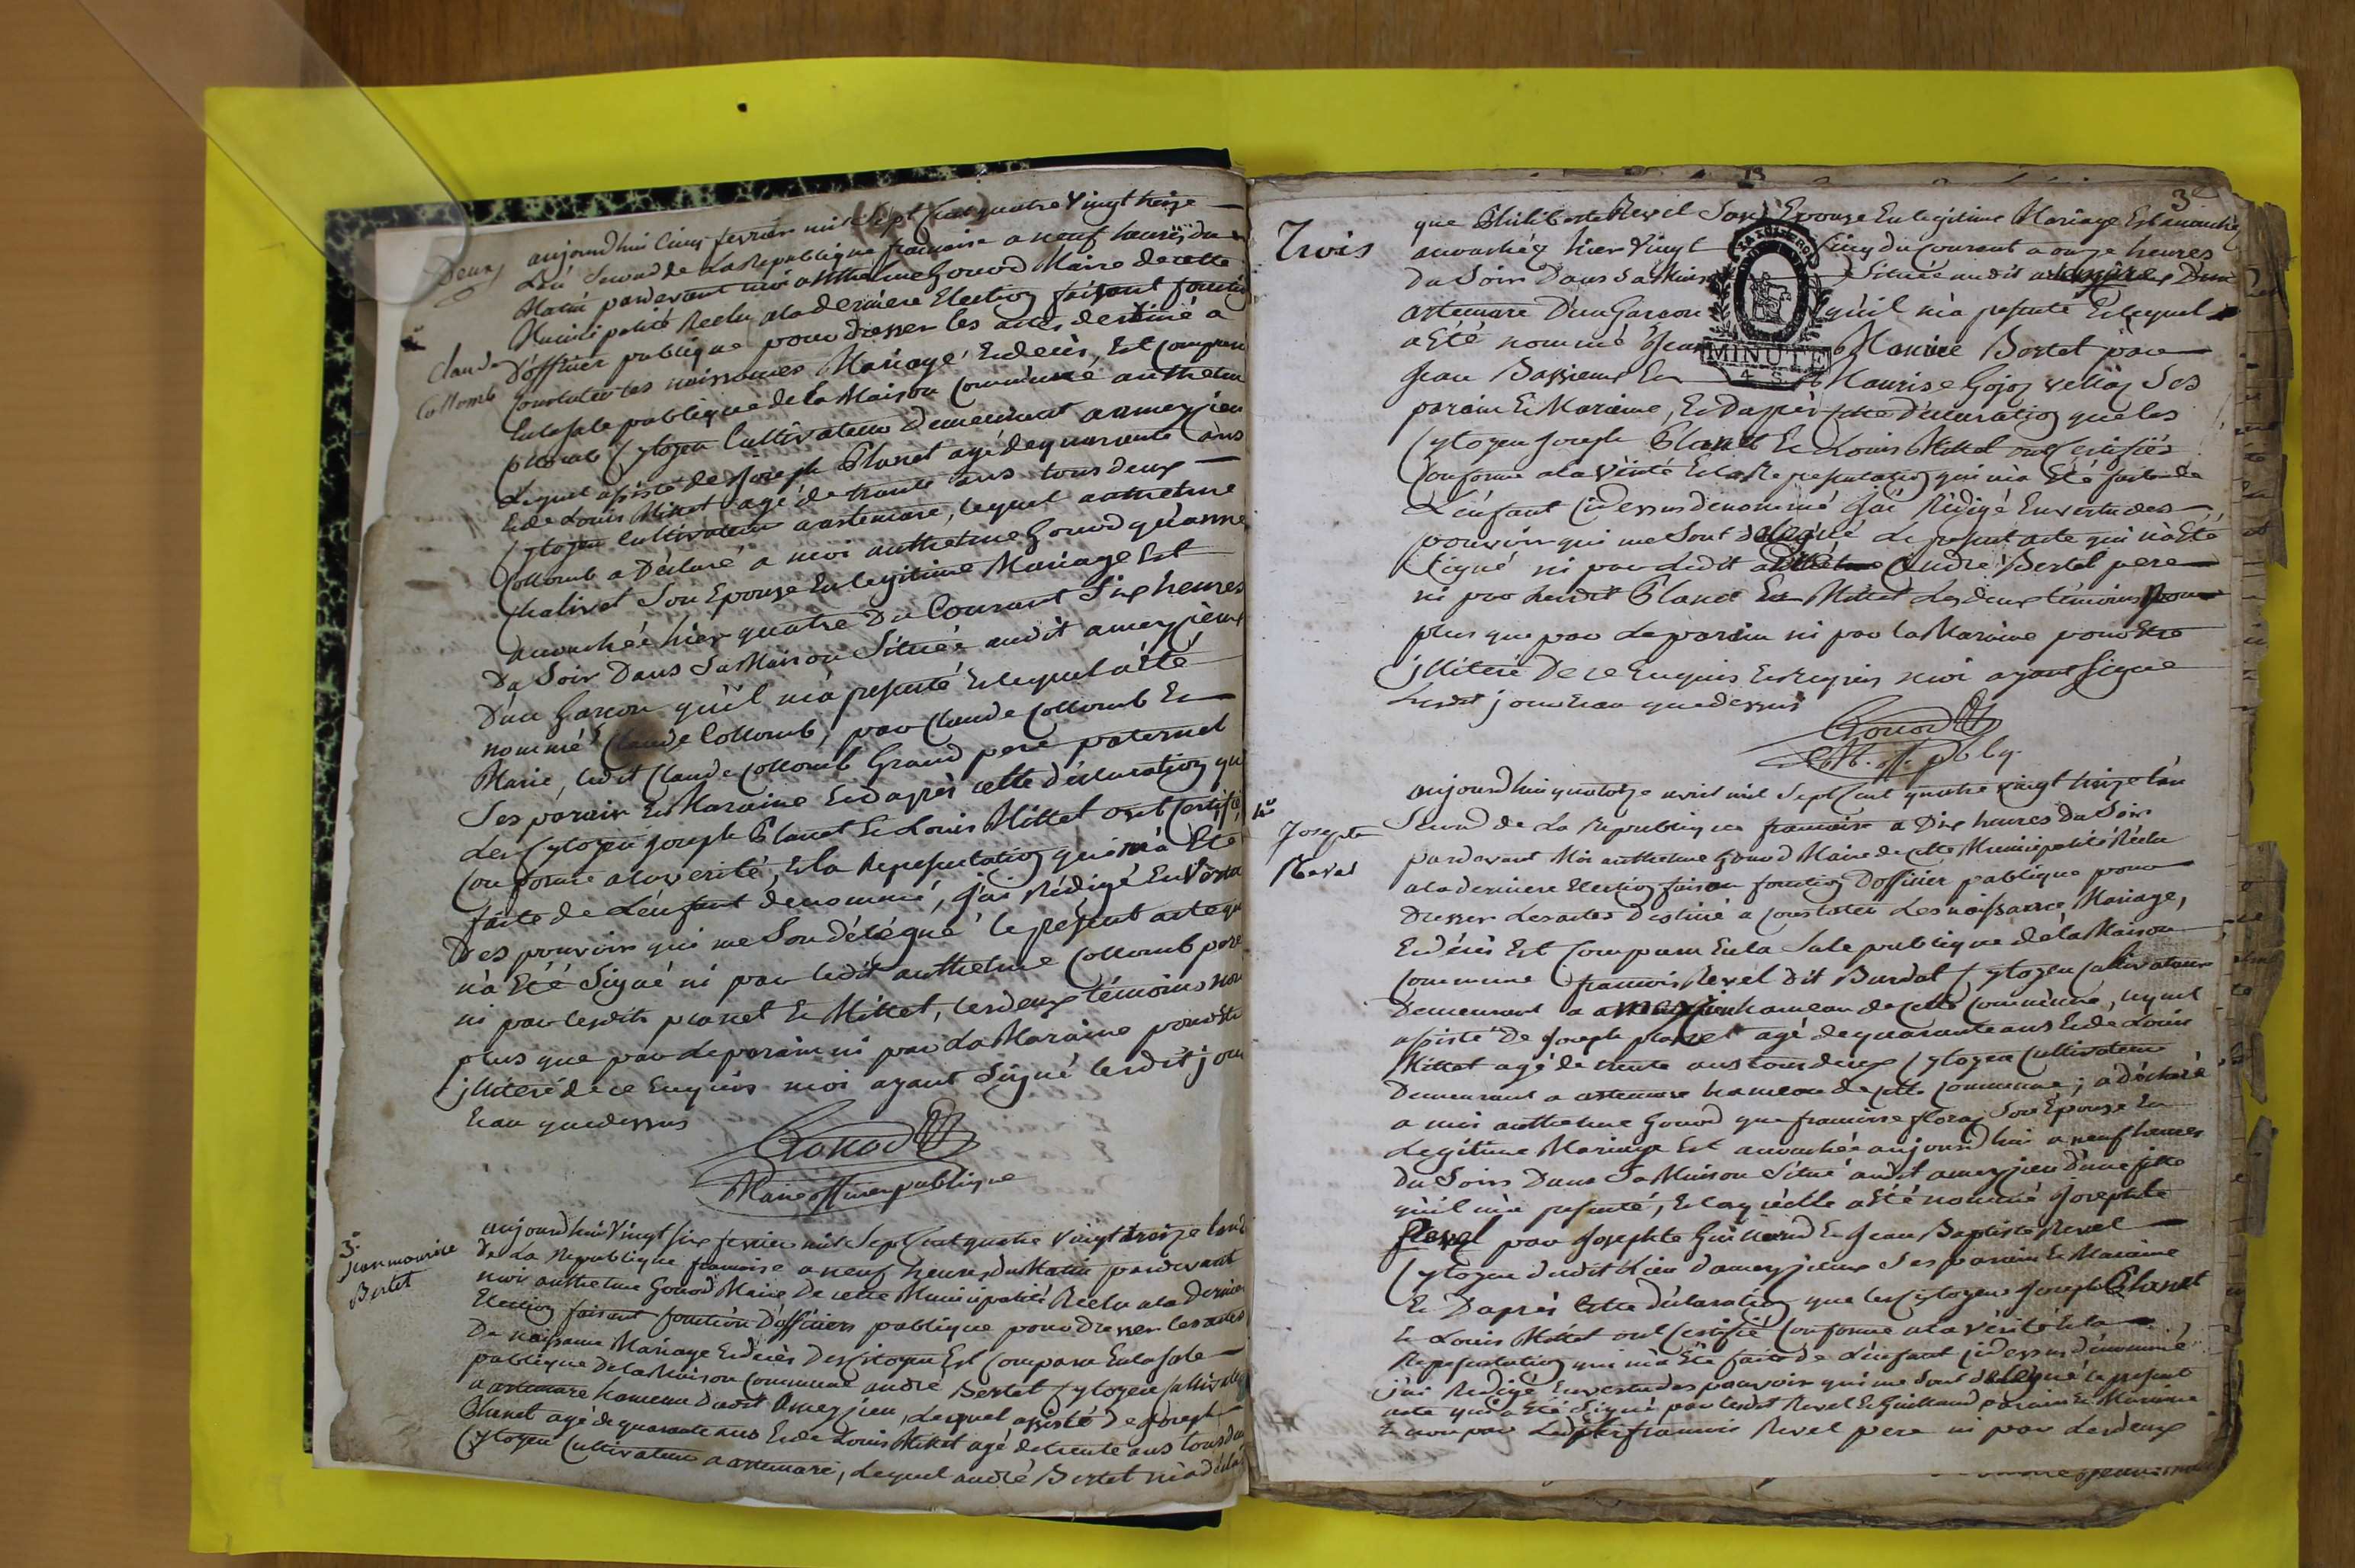 Deux
2e
Claude
Collomb
aujourd'hui cinq fevrier mil sept cent quatre vingt treize
L'an second de La Republique francoise a neuf heures du
Matin pardevant moi anthelme Gonod Maire de cette
Municipalité Reelu a la derniere Election faisant fonction
D'officier publique pour dresser les actes destiné a
Constater les naissances Mariage Endecès, Est comparu
En la sale publique de la Maison commune anthelme
Collomb Cytoyen Cultivateur demeurant a ameyzieu
Lequel assisté de Joseph Planet agé de quarante ans
Et de Louis Millet agé de trante ans tous deux
Cytoyen Cultivateur a artemare, lequel anthelme
Collomb a Déclaré a moi anthelme Gonod qu'anne
Chalivet Son Epouse En legitime Mariage Est
accouchée hier quatre Du Courant Six heures
Du Soir Dans Sa Maison Située audit ameyzieux
D'un Garcon qu'il m'a presenté Et lequel a été
nommé Claude Collomb, par Claude Collomb Et
Marie, ledit Claude Collomb Grand pere paternel
Ses parain Et Maraine Et d'après cette déclaration que
Les Cytoyen Joseph Planet Et Louis Millet ont Certifié
Conforme a la verité, Et la Representation qui m'a Eté
faite de L'enfant denommé, j'ai Rédigé En Vertu
Des pouvoirs qui me Son délégué le présent acte qui
n'a Eté Signé ni par ledit anthelme Collomb pere
ni par lesdits planet Et Millet, les deux témoins non
plus que par Le parain ni par La Maraine pour Etre
jlliteré de ce Enquis moi ayant Signé lesdit jour
Et an que dessus
Gonod
Maire officier publique
3e
Jean mourice
Bertet
aujourd'hui Vingt Six fevrier mil Sept Cent quatre Vingt treize l'an 2
de La Republique francoise a neuf heures du Matin pardevant
moi anthelme Gonod Maire De cette Municipalité Reelu a la Derniere
Election faisant fonction D'officiers publique pour Dresser les actes
De naissance Mariage Et décès Des Citoyen Est Comparu En la Sale
publique De la Maison Commune andré Bertet Cytoyen Cultivateur
a artemare hameau Dudit Ameyzieu, Lequel assisté De Joseph
Planet agé de quarante ans Et de Louis Millet agé de trente ans tous deux
Cytoyen Cultivateur a artemare, Lequel andré Bertet m'a déclaré
3e
Trois
que Philiberte Revel Son Epouse En legitime Mariage Est
accouchée hier Vingt Cinq du Courant a onze heures
Du Soir Dans Sa Maison Située audit
artemare D'un Garcon qu'il m'a presenté Et lequel
a Eté nommé Jean Maurice Bertet par
Jean Et Maurise Ses
parain Et Maraine, Et D'après cette Déclaration que les
Cytoyen Joseph Planet Et Louis Millet ont Certifiés
Conforme a la Vérité Et la Representation qui m'a Eté faite de
L'enfant Cidessus denommé j'ai Rédigé En vertu des
pouvoirs qui me Sont délégué Le present acte qui n'a Eté
Signé ni par Ledit André Bertet pere
ni par Lesdit Planet Et Millet Les deux témoins
plus que par Le parain ni par la Maraine pour Etre
jlliteré De ce Enquis Et Requis moi ayant Signé
Lesdit jour Et an que dessus
Gonod
M. off. pbliq.
4e
Josephte
Revel
aujourd'hui quatorze avril mil Sept Cent quatre vingt treize l'an
Second de La Republique francoise a Dix heures Du Soir
pardevant Moi anthelme Gonod Maire de cette Municipalité Réelu
a la derniere Election faisan fonction D'officier publique pour
Dresser Les actes Destiné a Constater Les naissance Mariage,
Et décès Est Comparu En la Sale publique de la Maison
Commune francois Revel Dit Burdat Cytoyen Cultivateur
Demeurant a ameyzieu hameau de cette Commune, lequel
assisté De Joseph planet agé de quarante ans Et de Louis
Millet agé de trente ans tous deux Cytoyen Cultivateur
Demeurant a artemare hameau de cette commune; a déclaré
a moi anthelme Gonod que francoise floraz Son Epouse En
Legitime Mariage Est accouchée aujourd'hui a neuf heures
Du Soirs Dans Sa Maison Situé audit ameyzieu D'une fille
qu'il m'a presenté, Et laquelle a Eté nommé Josephte
Revel par Josephte Guilland Et Jean Baptiste Revel
Cytoyen dudit Lieu d'ameyzieux Ses parain Et Maraine
Et D'après Cette Déclaration que les Cytoyens Joseph Planet
Et Louis Millet ont Certifié Conforme a la Vérité Et la
Representation qui m'a Eté faite de L'enfant Cidessus dénommé
j'ai Redigé En vertu des pouvoirs qui me Sont délégué le present
acte qui a Eté Signé par lesdit Revel Et Guilland parain Et Maraine
Et non par Ledit francois Revel pere ni par Les deux
MINUTE